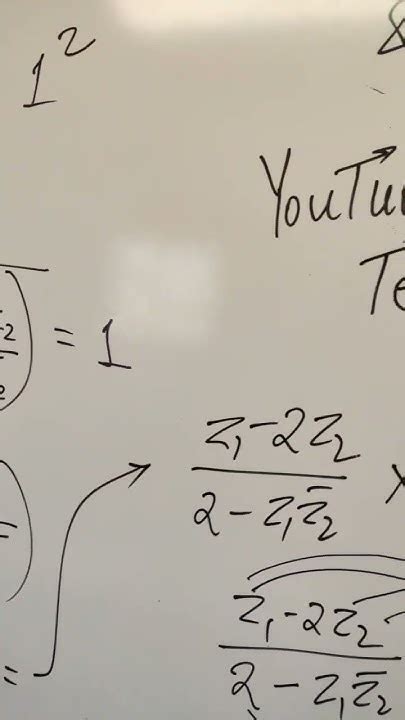 1²
YouTu
Te
= 1
z₁-2z₂ / 2 - z₁z̄₂ ×
z₁-2z₂ / 2 - z₁z̄₂
=